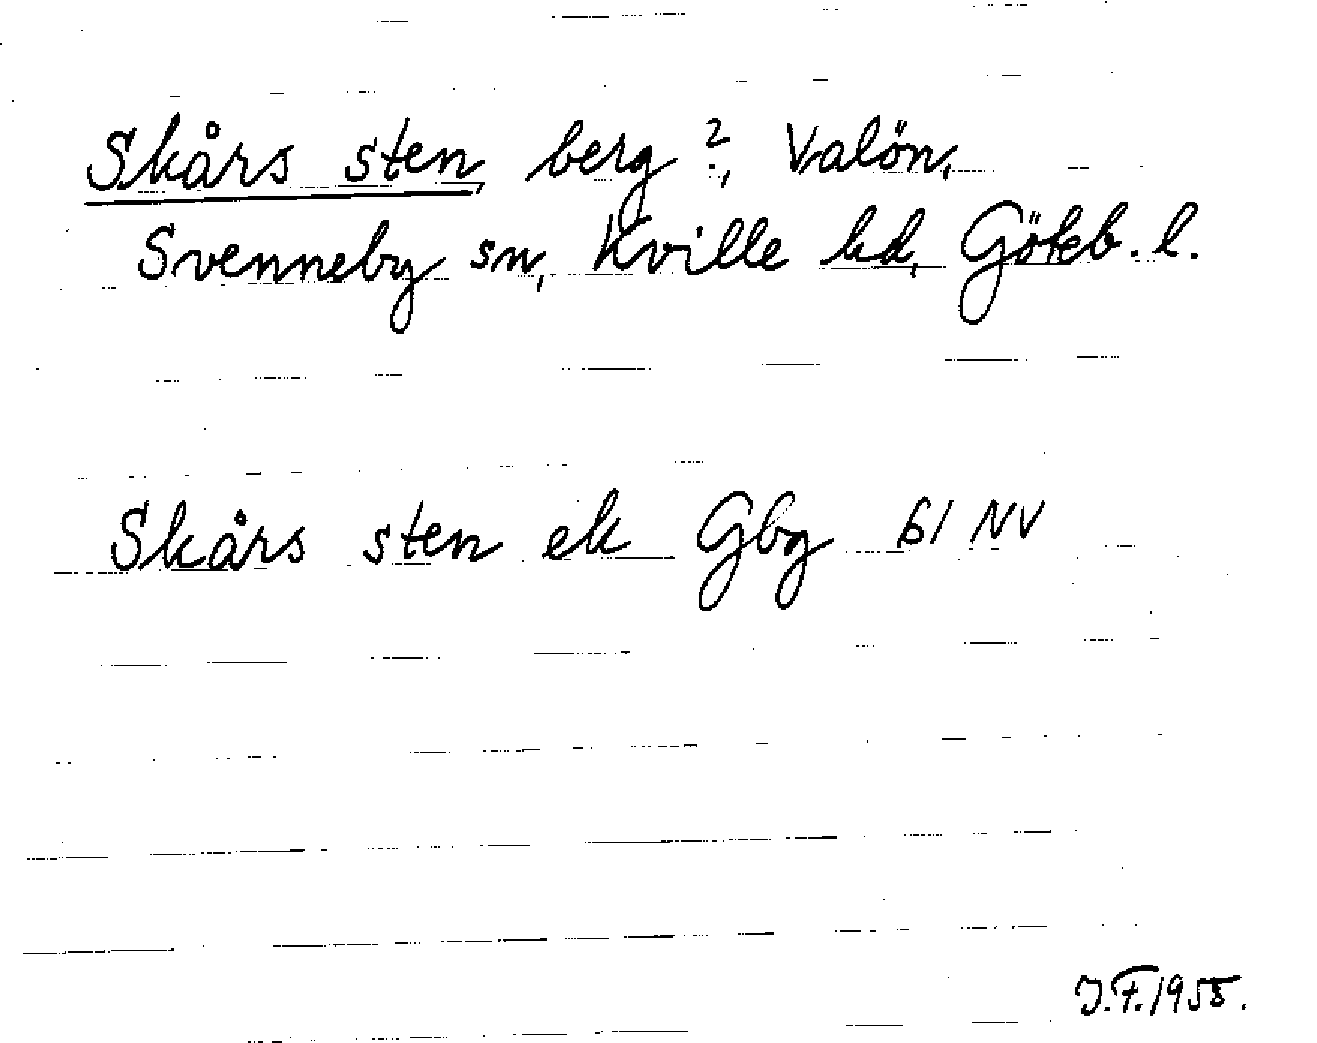 Skårs sten, berg ?, Valön,
Svenneby sn, Kville hd, Göteb. l.
Skårs sten ek Gbg 61 NV
J.F. 1955.